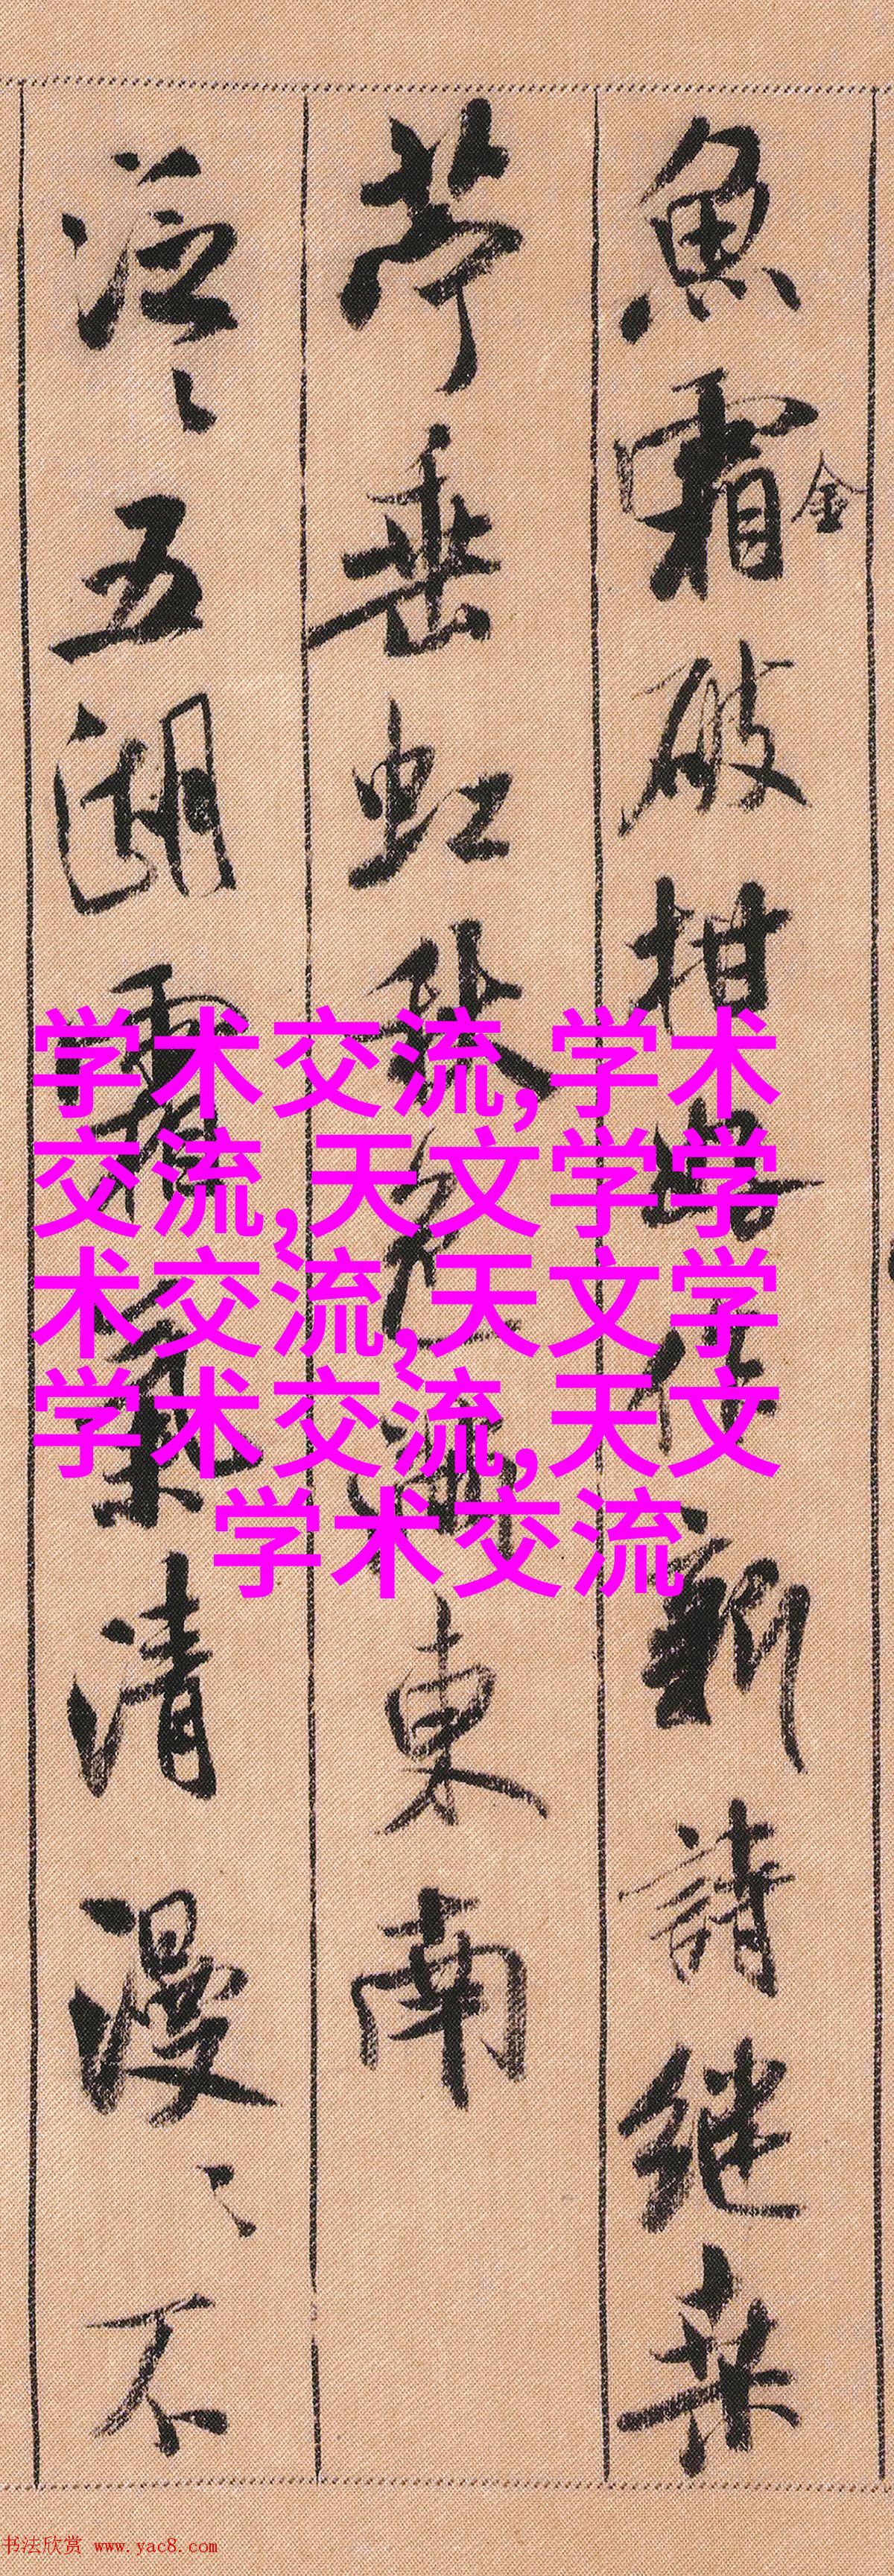 魚霜破柑好作新詩継桑
金
苧垂虹秋色滿東南
泛〻五湖霜氣清漫〻不
学术交流,学术
交流,天文学学
术交流,天文学
学术交流,天文
学术交流
书法欣赏 www.yac8.com